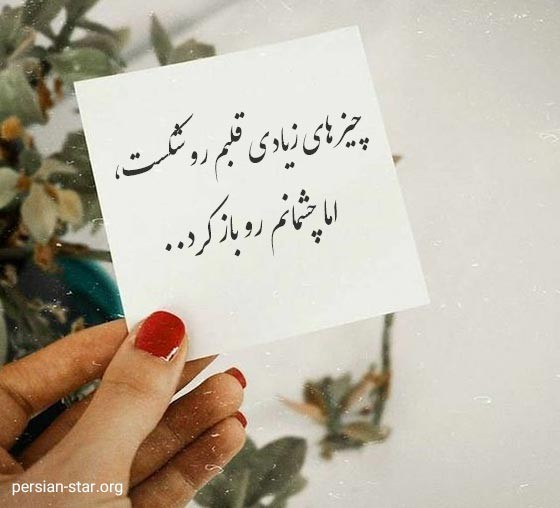 چیزهای زیادی قلبم رو شکست،
اما چشمانم رو باز کرد..
persian-star.org